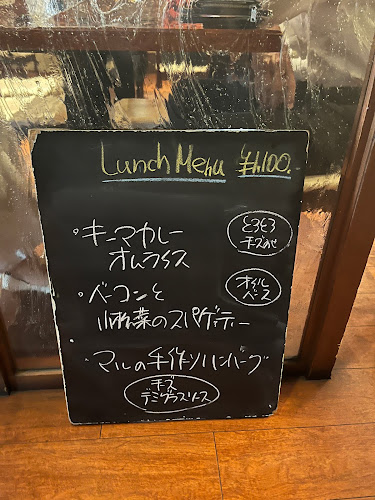 Lunch Menu ¥1,100.
・キーマカレー
オムライス
とろとろ
チーズのせ
・ベーコンと
小松菜のスパゲティー
オイル
ベース
・マルの手作りハンバーグ
チーズ
デミグラスソース